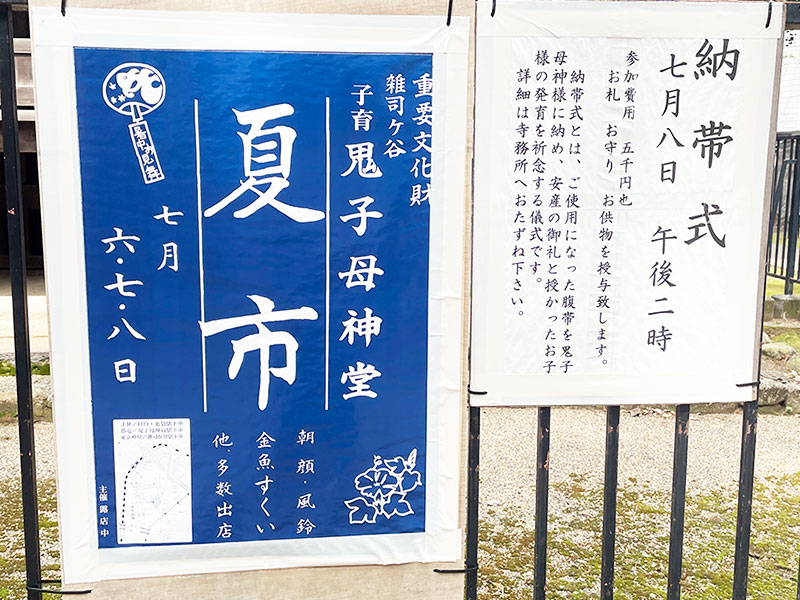 重要文化財
雑司ケ谷
子育鬼子母神堂
夏市
七月
六・七・八日
暑中お見舞
朝顔・風鈴
金魚すくい
他、多数出店
主催露店中
納帯式
七月八日　午後二時
参加費用　五千円也
お札　お守り　お供物を授与致します。
納帯式とは、ご使用になった腹帯を鬼子
母神様に納め、安産の御礼と授かったお子
様の発育を祈念する儀式です。
詳細は寺務所へおたずね下さい。